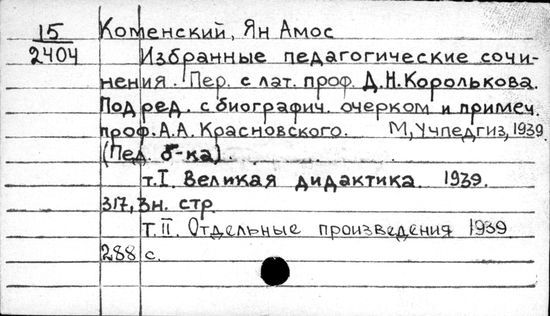 15
2404
Коменский, Ян Амос
Избранные педагогические сочи-
нения. Пер. с лат. проф. Д.Н. Королькова.
Под ред. с биографич. очерком и примеч.
проф. А.А. Красновского. М, Учпедгиз, 1939
(Пед. б-ка).
т.I. Великая дидактика. 1939.
317, 3н. стр
Т.II. Отдельные произведения 1939
288 с.